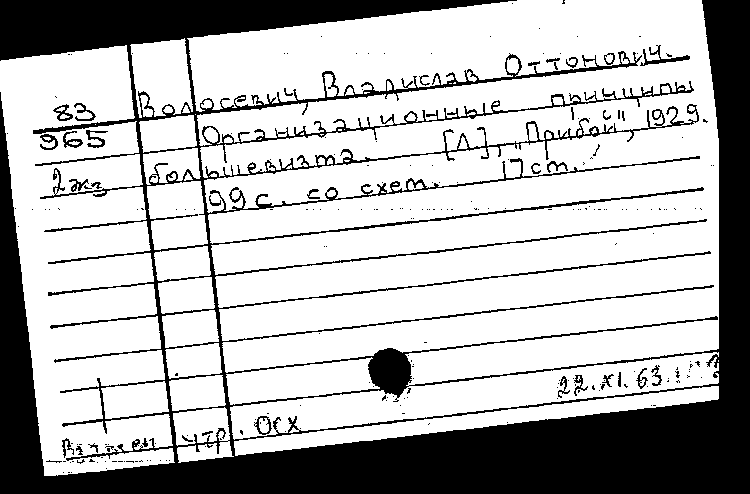 83 Волосевич, Владислав Оттонович.
965 Организационные принципы
2экз большевизма. [Л], „Прибой", 1929.
99 с. со схем. 17 ст.
22.XI.63.
утр. Осх